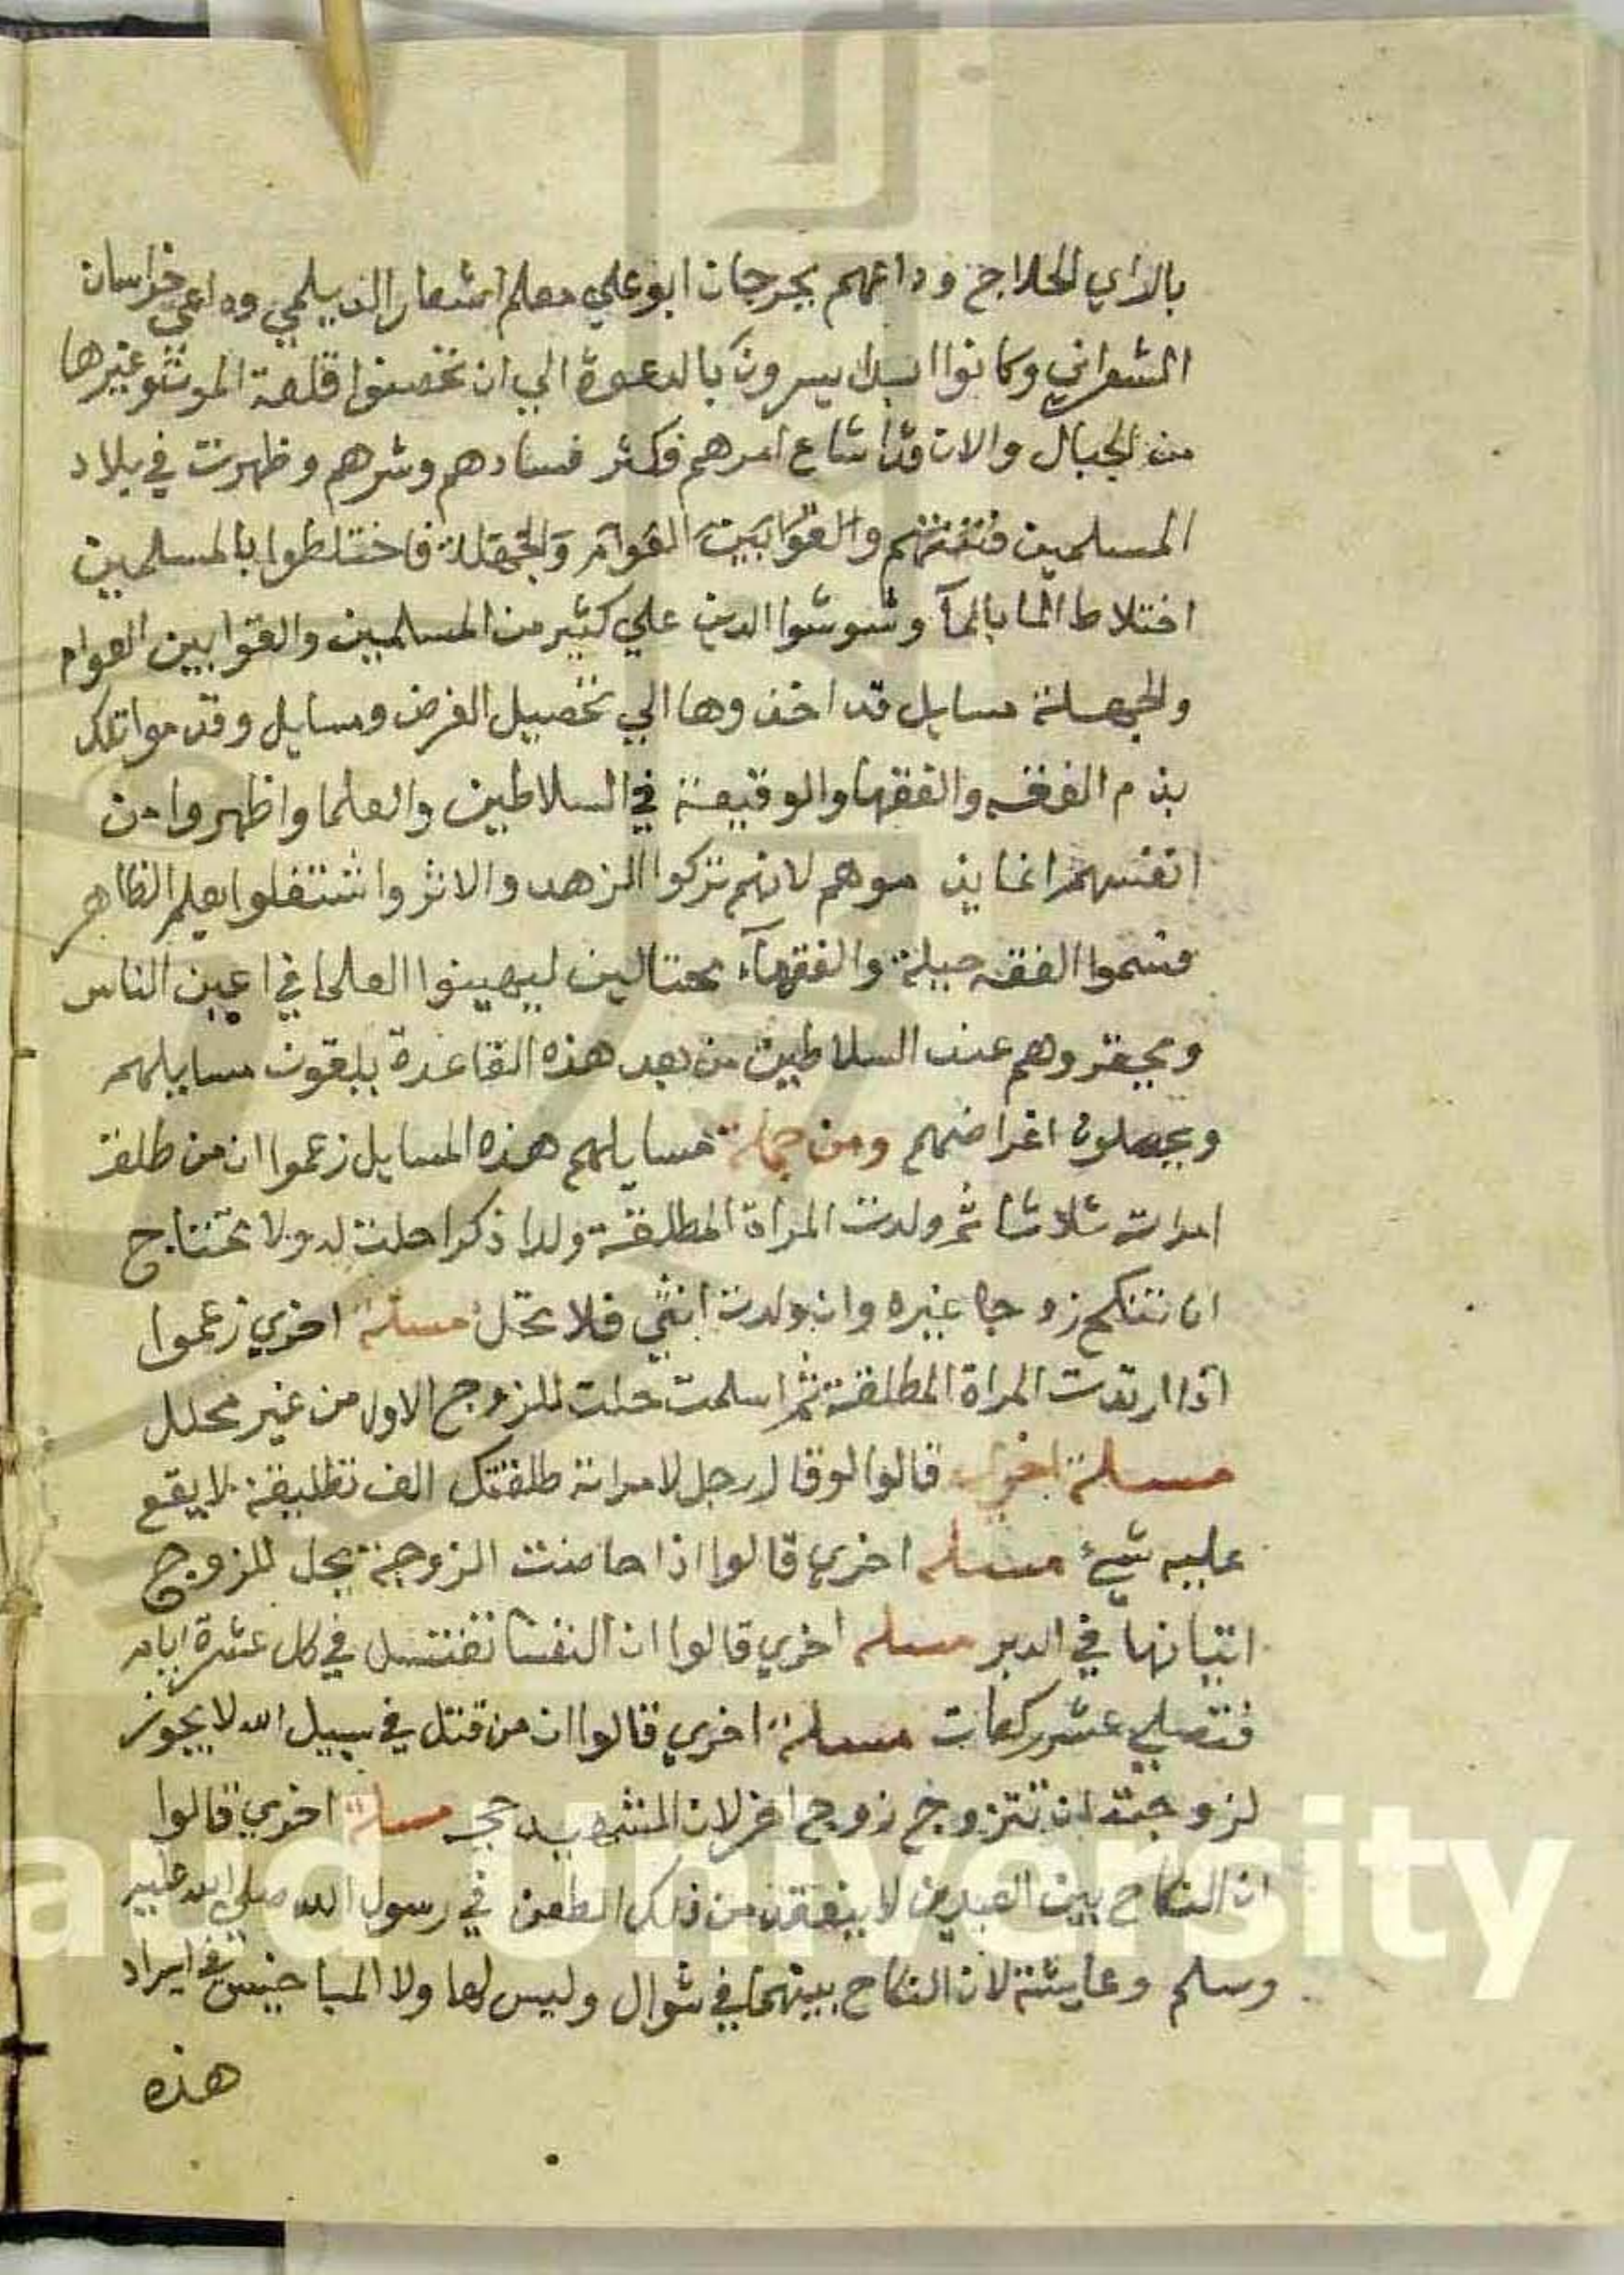 بالراي الحلاج وداعيهم بجرجان ابو علي معلم اشعار الديلمي وداعي خراسان
الشعراني وكانوا ابدا يسرون بالدعوة الي ان تحصنوا قلعة الموت وغيرها
من الجبال والان قد اشاع امرهم فكثر فسادهم وشرهم وظهرت في بلاد
المسلمين فتنتهم والقوا بين العوام والجهلة فاختلطوا بالمسلمين
اختلاط الما بالمآ وشوشوا الدين علي كثير من المسلمين والقوا بين العوام
والجهلة مسايل قد اخذوها الي تحصيل الغرض ومسايل وقدموا تلك
بذم الفقه والفقها والوقيعة في السلاطين والعلما واظهروا من
انفسهم انما يذموهم لانهم تركوا الزهد والاثر واشتغلوا بعلم الظاهر
فسموا الفقه حيلة والفقهآء محتالين ليهينوا العلما في اعين الناس
ويحقروهم عند السلاطين من بعد هذه القاعدة يلقون مسايلهم
ويحصلون اغراضهم ومن جملة مسايلهم هذه المسايل زعموا ان من طلق
امراته ثلاثا ثم ولدت المراة المطلقة ولدا ذكرا حلت له ولا تحتاج
ان تنكح زوجا غيره وان ولدت انثي فلا تحل مسلة اخري زعموا
اذا ارتدت المراة المطلقة ثم اسلمت حلت للزوج الاول من غير محلل
مسلة اخري قالوا لو قال رجل لامراته طلقتك الف تطليقة لا يقع
عليه شيء مسلة اخري قالوا اذا حاضت الزوجة يحل للزوج
اتيانها في الدبر مسلة اخري قالوا ان النفسا تغتسل في كل عشرة ايام
فتصلي عشر ركعات مسلة اخري قالوا ان من قتل في سبيل الله لا يجوز
لزوجته ان تتزوج زوج اخر لان الشهيد حي مسلة اخري قالوا
ان النكاح بين العيدين لا ينعقد من ذلك الطعن في رسول الله صلي الله عليه
وسلم وعايشة لان النكاح بينهما في شوال وليس لها ولا المباحيين في ايراد
هذه
aud University